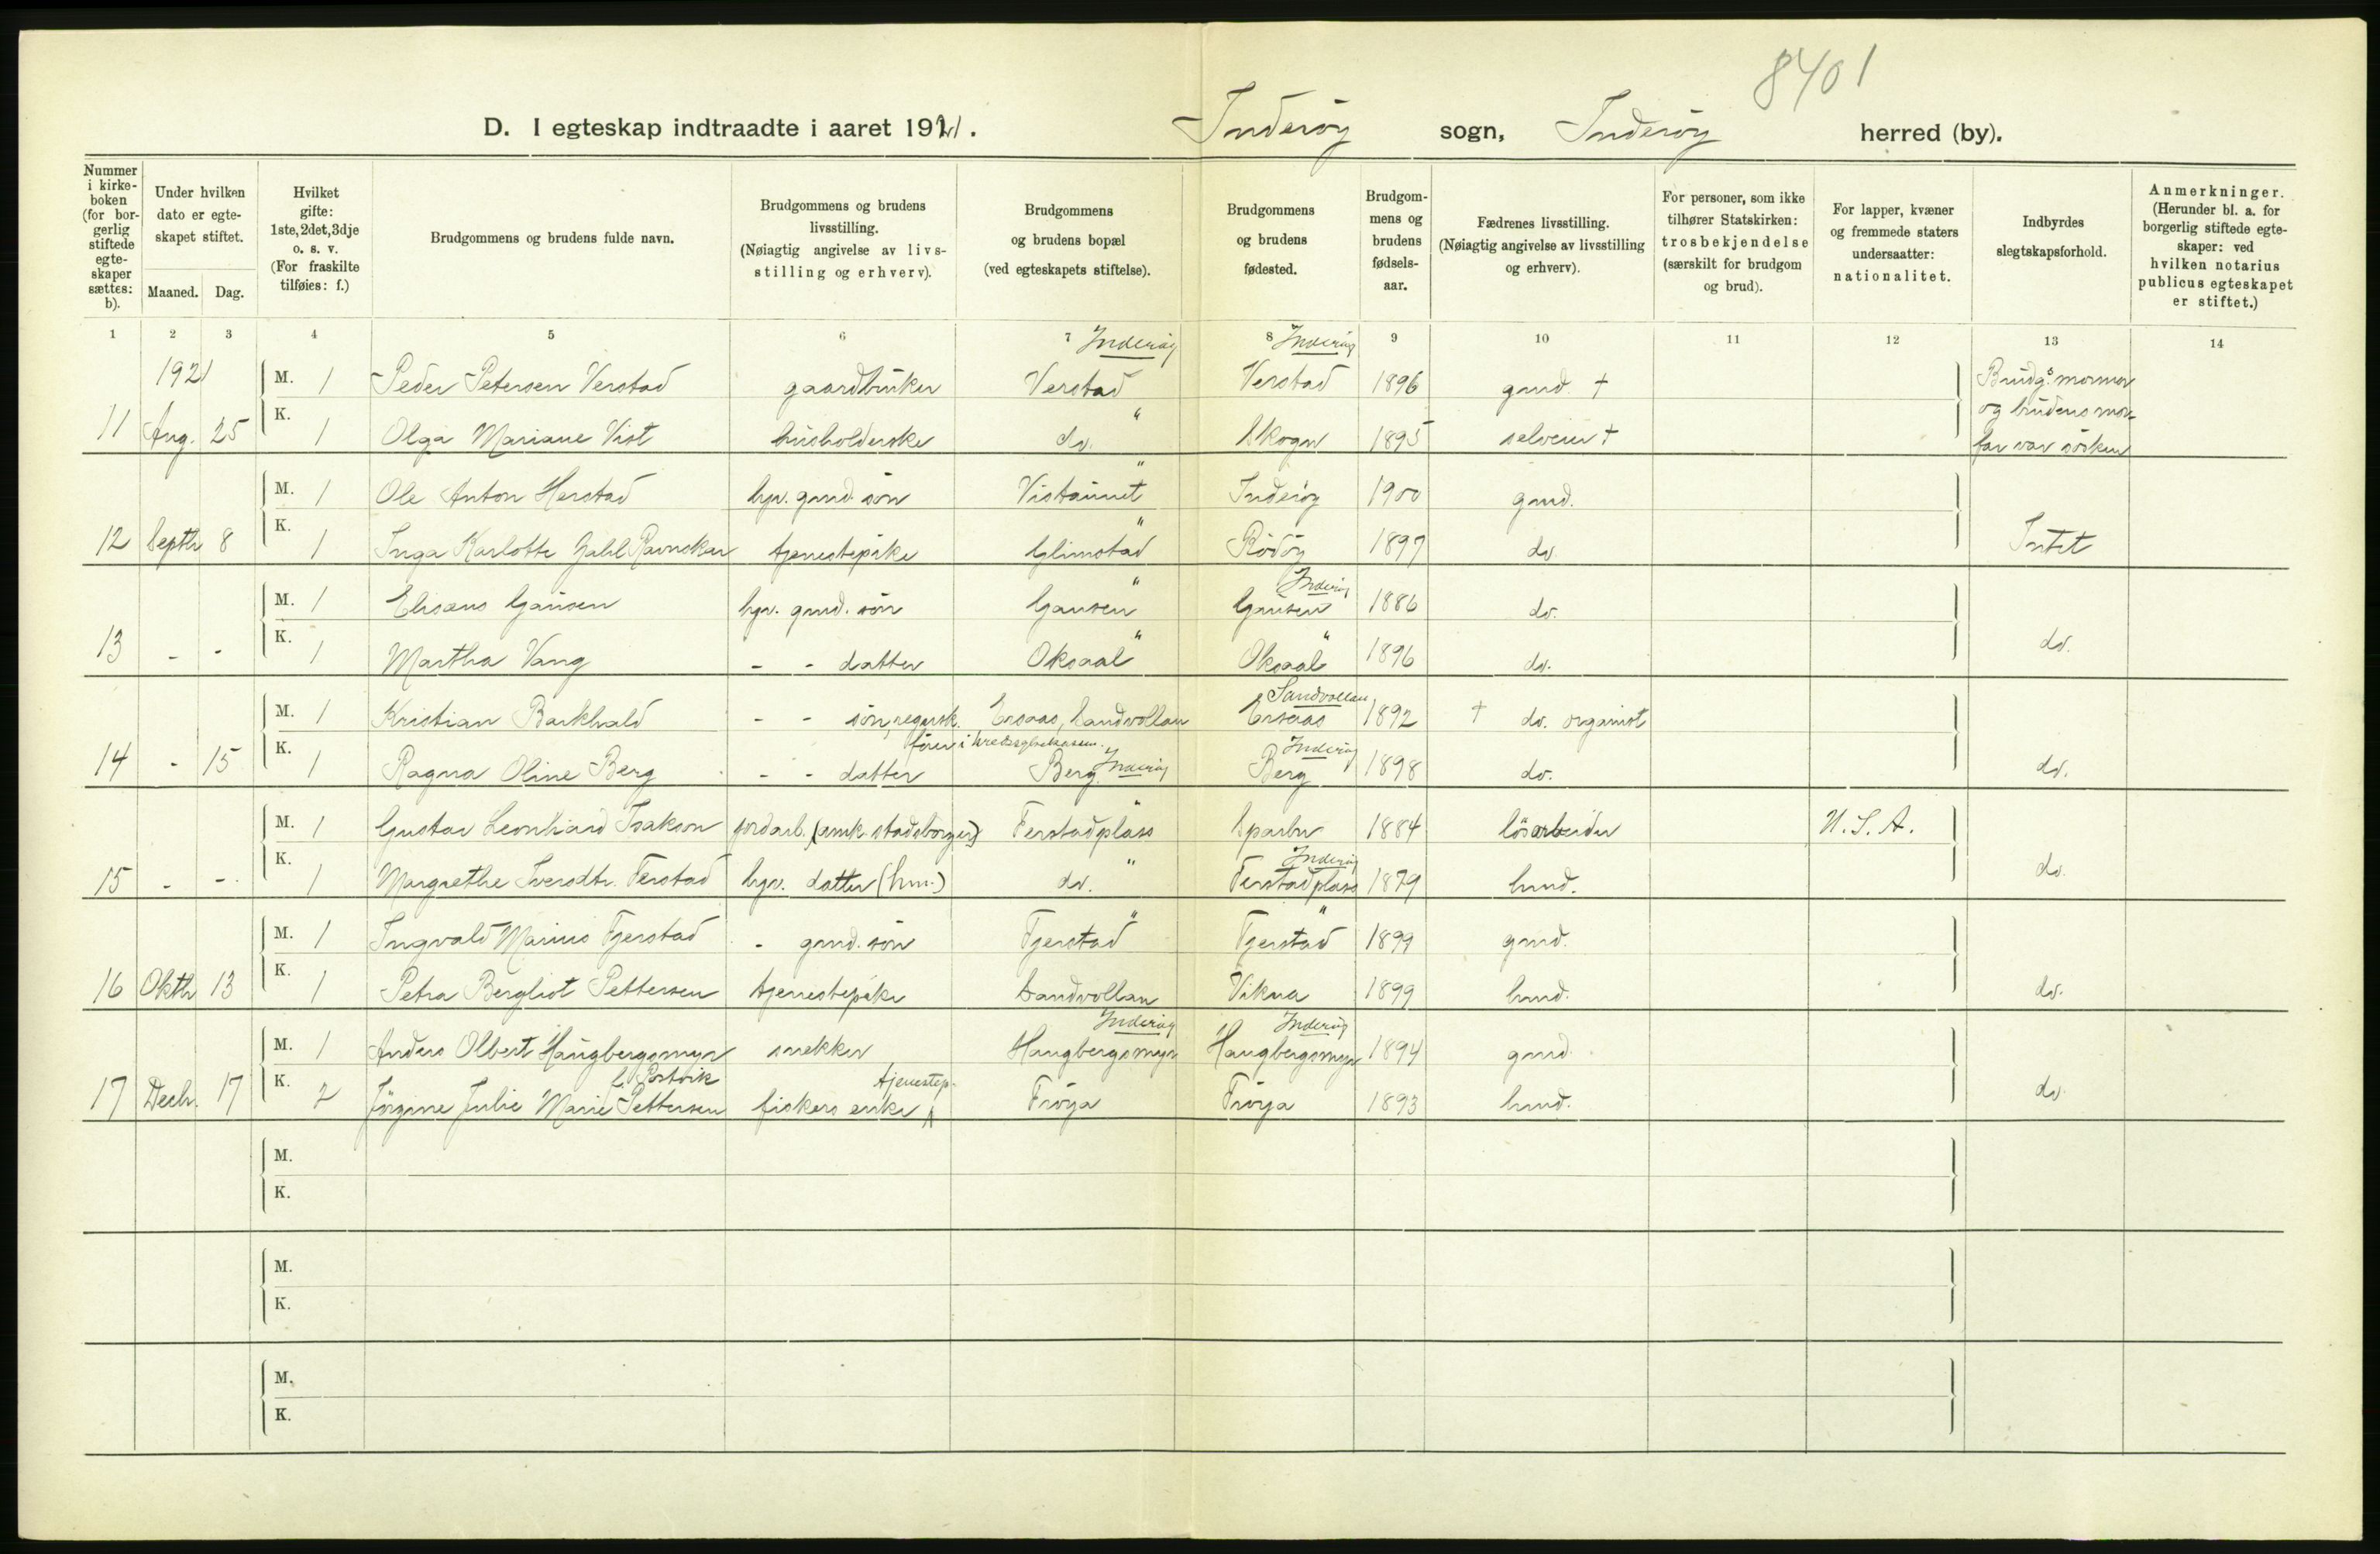 8401
D. I egteskap indtraadte i aaret 1921. Inderöy sogn, Inderöy herred (by).
Nummer i kirke- boken (for bor- gerlig stiftede egte- skaper sættes: b).
Under hvilken dato er egte- skapet stiftet.
Maaned. Dag.
Hvilket gifte: 1ste, 2det, 3dje o. s. v. (For fraskilte tilføies: f.)
Brudgommens og brudens fulde navn.
Brudgommens og brudens livsstilling. (Nøiagtig angivelse av livs- stilling og erhverv).
Brudgommens og brudens bopæl (ved egteskapets stiftelse).
Brudgommens og brudens fødested.
Brudgom- mens og brudens fødsels- aar.
Fædrenes livsstilling. (Nøiagtig angivelse av livsstilling og erhverv).
For personer, som ikke tilhører Statskirken: trosbekjendelse (særskilt for brudgom og brud).
For lapper, kvæner og fremmede staters undersaatter: nationalitet.
Indbyrdes slegtskapsforhold.
Anmerkninger. (Herunder bl. a. for borgerlig stiftede egte- skaper: ved hvilken notarius publicus egteskapet er stiftet.)
1 2 3 4 5 6 7 8 9 10 11 12 13 14
Inderöy Inderöy
1921 M. 1 Peder Petersen Verstad gaardbruker Verstad Verstad 1896 gmd. † Brudg.s mormor
og brudens mor-
11 Aug. 25 K. 1 Olga Mariane Vist husholderske do. " Skogn 1895 selveier † far var søsken
M. 1 Ole Anton Herstad hjv. gmd. sön Vistaunet " Inderöy 1900 gmd.
12 Septb 8 K. 1 Inga Karlotte Gabl. Ramskar tjenestepike Glimstad " Rödöy 1897 do. Intet
Inderöy
M. 1 Elisæus Gausen hjv. gmd. sön Gausen " Gausen 1886 do.
13 - - K. 1 Martha Vang - - datter Oksaal " Oksaal " 1896 do. do.
Sandvollan
M. 1 Kristian Barkhald - - sön, regnsk. Ersaas, Sandvollan Ersaas 1892 † do. organist
fører i kredssykekassen. Inderöy
14 - 15 K. 1 Ragna Oline Berg - - datter Berg. Inderöy Berg 1898 do. do.
M. 1 Gustav Leonhard Isakson jordarb. (amk. stadsborger) Ferstadplass " Sparbu 1884 lösarbeider U.S.A.
Inderöy
15 - - K. 1 Margrethe Iversdtr. Ferstad hjv. datter (hm.) do. " Ferstadplass 1879 hmd. do.
M. 1 Ingvald Marius Fjerstad - gmd. sön Fjerstad " Fjerstad " 1899 gmd.
16 Oktb 13 K. 1 Petra Bergliot Pettersen tjenestepike Sandvollan Vikna 1899 hmd. do.
Inderöy Inderöy
M. 1 Anders Olbert Haugbergsmyr snekker Haugbergsmyr Haugbergsmyr 1894 gmd.
tjenestep.
17 Decb. 17 K. 2 Jörgine Julie Marie Pettersen fiskers enke Fröya Fröya 1893 hmd. do.
M.
K.
M.
K.
M.
K.